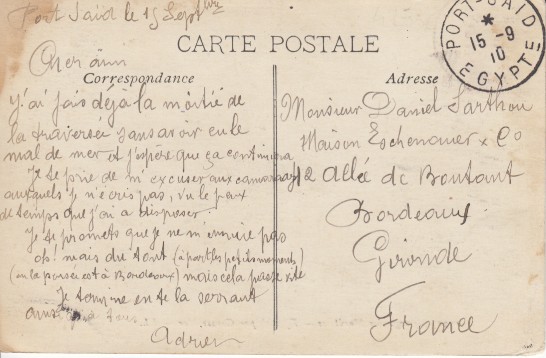 Port Said le 15 Septbre
CARTE POSTALE
Correspondance
Adresse
PORT-SAID
15-9
10
EGYPTE
Cher ami
J'ai fais déjà la moitié de
la traversée sans avoir eu le
mal de mer et j'espère que ça continuera
Je te prie de m'excuser aux camarades
auxquels je n'écris pas, vu le peu
de temps que j'ai a disposer.
Je te promets que je ne m'ennuie pas
oh! mais du tout (à part les petits moments)
(ou la pensée est à Bordeaux) mais cela passe vite
Je termine en te la serrant
Adrien
Monsieur Daniel Sarthou
Maison Eschenauer & Co
12 Allée de Boutaut
Bordeaux
Gironde
France